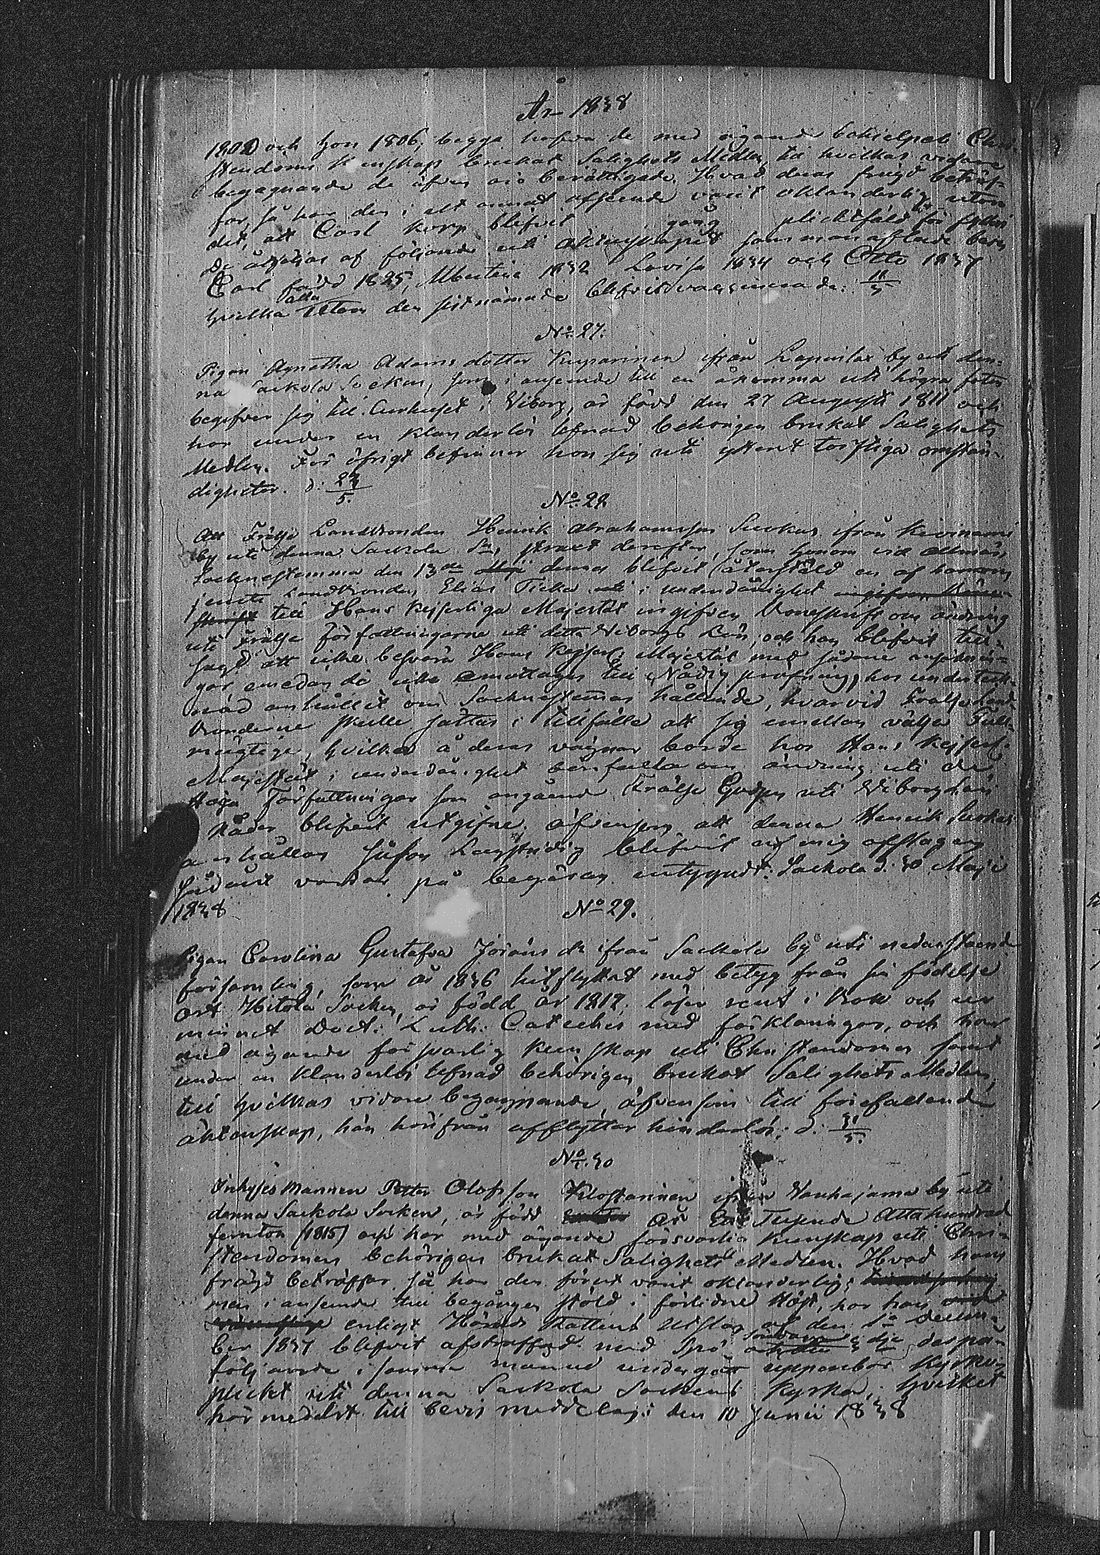 År 1838
1802 och hon 1806, begge hafva de med ägande
stendoms kunskap brukat Salighets Medlen, till hvilkas vidare
begagnande de äfven äro berättigade. Hvad deras frägd beträf-
far så har den i ett annat afseende varit oklanderlig, utom
det, att Carl Korp blifvit gång
De åtföljas af följande uti äktenskapet barn
Carl född 1825, Albertina 1832 Lovisa 1834 och Otto 1837
hvilka alla utom den sistnämnde blifvit vaccinerade: 11/5
No 27.
Pigan Agnetha Adams dotter Kuparinen ifrån Lapinlax by uti den-
na Sackola Socken, som i anseende till en åkomma uti högra foten
begifver sig till Curhuset i Viborg, är född den 27 Augusti 1811 och
har under en klanderlös lefnad behörigen brukat Salighets
Medlen. För öfrigt befinner hon sig uti ytterst torftiga omstän-
digheter. d: 23/5
No 28.
Att Frälse Landbonden Henrik Abrahamsson Suikas ifrån
by uti denna Sackola Sn, straxt derefter, som honom vid allmän
Socknestämma den 13de dennes blifvit återstäld en af honom
jemte Landbonden Elias Ticka i underdånighet
till Hans Kejserliga Majestät ingifven Böneskrift om ändring
uti Frälse författningarne uti detta Viborgs Län, och han blifvit till-
sagd att icke besvära Hans Kejserl. Majestät med sådane ansöknin-
gar emedan de icke emottagas till Nådig pröfning, hos undertek-
nad anhållit om Sockneståmmas hållande, hvarvid Frälse Land-
bönderne skulle sättas i tillfälle att sig emellan välja Full-
mägtige, hvilka å deras vägnar borde hos Hans Kejserl:
Majestät i underdånighet bönfalla om ändring uti de
Höga Författningar som angående Frälse Godsen uti Viborgs län
Nåder blifvit utgifne, äfvensom att denne Henrik Suikas
anhållan såsom Lagstridig blifvit af mig afslagen
sådant varder på begäran intygadt: Sackola d. 30 Maji
1838
No 29.
Pigan Carolina Gustafva Jörans dr ifrån Sackola by uti nedanstående
församling, som år 1836 hitflyttat med betyg från sin födelse
ort Hitola Socken, är född år 1817, läser rent i Bok och ur
minnet Doct: Luth: Catechis med förklaringar, och har
med ägande försvarlig kunskap uti Christendomen samt
under en klanderlös lefnad behörigen brukat Salighets Medlen,
till hvilkas vidare begagnande, äfvensom till förefallande
äktenskap, hon härifrån afflyttar hinderlös: d: 31/5
No 30
Inhyses Mannen Petter Olofsson Kiloskarinen ifrån Vanhajama by uti
denna Sackola Socken, är född År Ett Tusende Åttahundrad
femton (1815) och har med ägande försvarlig kunskap uti Chri-
stendomen behörigen brukat Salighets Medlen. Hvad hans
frägd beträffar så har den förut varit oklanderlig;
men i anseende till begången stöld i förlidne Höst, har han
enligt Härads Rättens Utslag af den 5te Decem-
ber 1837 blifvit afstraffad med Spö derpå
följande i samma månad undergått uppenbar Kyrko-
plikt uti denna Sackola Sockens Kyrka; hvilket
härmedelst till bevis meddelas: den 10 Junii 1838